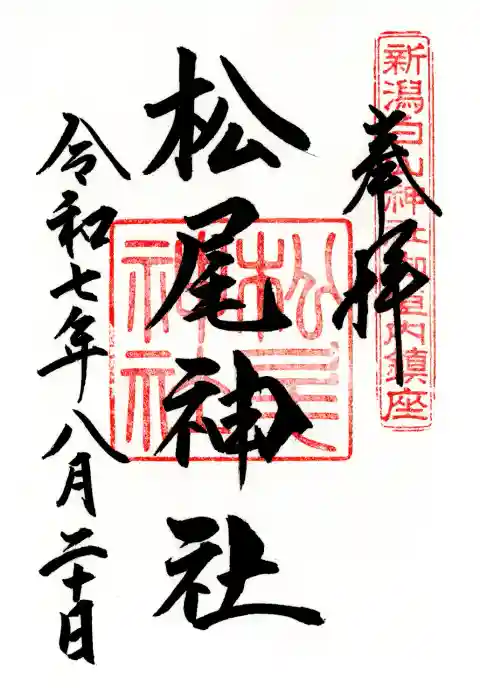 新潟白山神社御室内鎮座
奉拝
松尾神社
松尾
神社
令和七年八月二十日